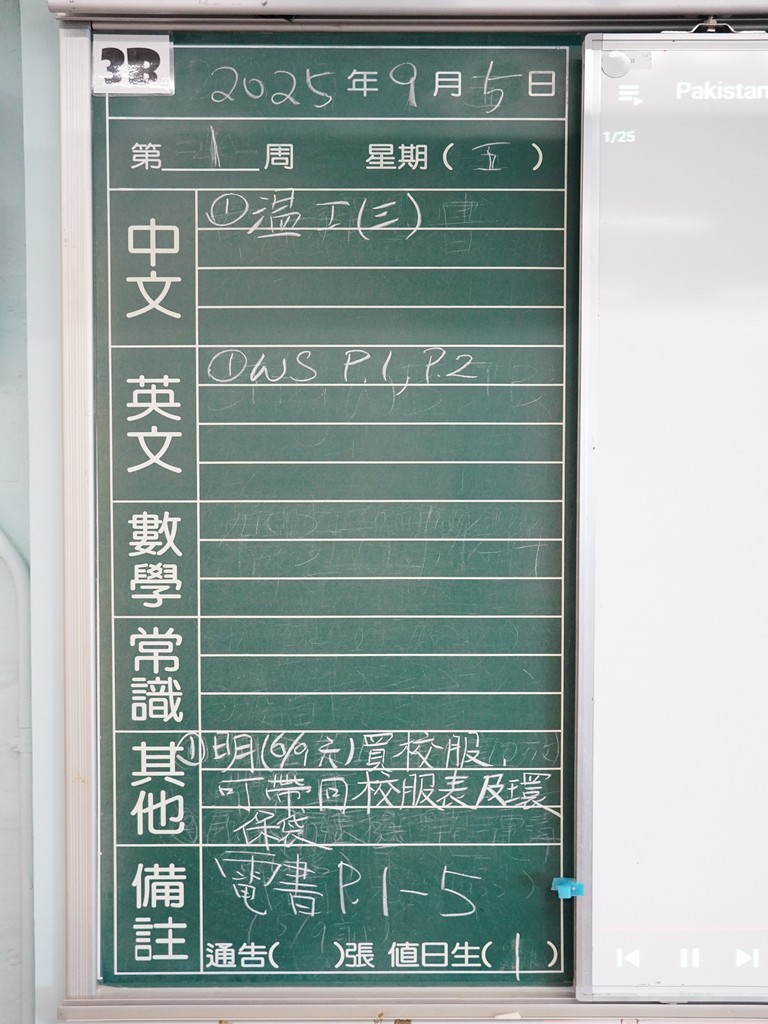 3B
2025年9月5日
第1周 星期(五)
中文
①溫工(三)
英文
①WS P.1, P.2
數學
常識
其他
①明(6/9六)買校服,
可帶回校服表及環
保袋
備註
電書P.1-5
通告( )張 值日生(1)
Pakistan
1/25